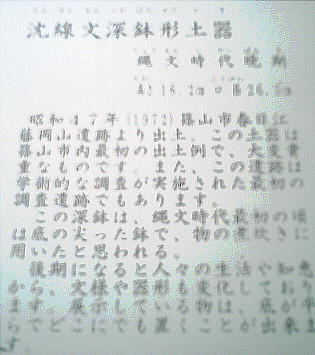 沈線文深鉢形土器
縄文時代晩期
高さ18.2㎝ 口径26.5㎝
昭和47年(1972)篠山市春日江
藤岡山遺跡より出土。この土器は
篠山市内最初の出土例で、大変貴
重なものです。また、この遺跡は
学術的な調査が実施された最初の
調査遺跡でもあります。
この深鉢は、縄文時代最初の頃
は底の尖った鉢で、物の煮炊きに
用いたと思われる。
後期になると人々の生活や知恵
かに文様や形も変化し、底が平
らで、どこにでも置くことが出来ま
す。